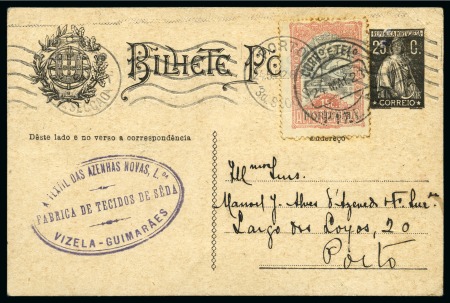 BILHETE PO
REPUBLICA PORTUGUESA
25 C.
CORREIO
Dêste lado e no verso a correspondência
Endereço
A TEXTIL DAS AZENHAS NOVAS, L.da
FABRICA DE TECIDOS DE SÊDA
VIZELA - GUIMARÃES
Ill.mos Snrs.
Manoel J. Alves d'Azevedo
Largo dos Loyos, 20
Porto